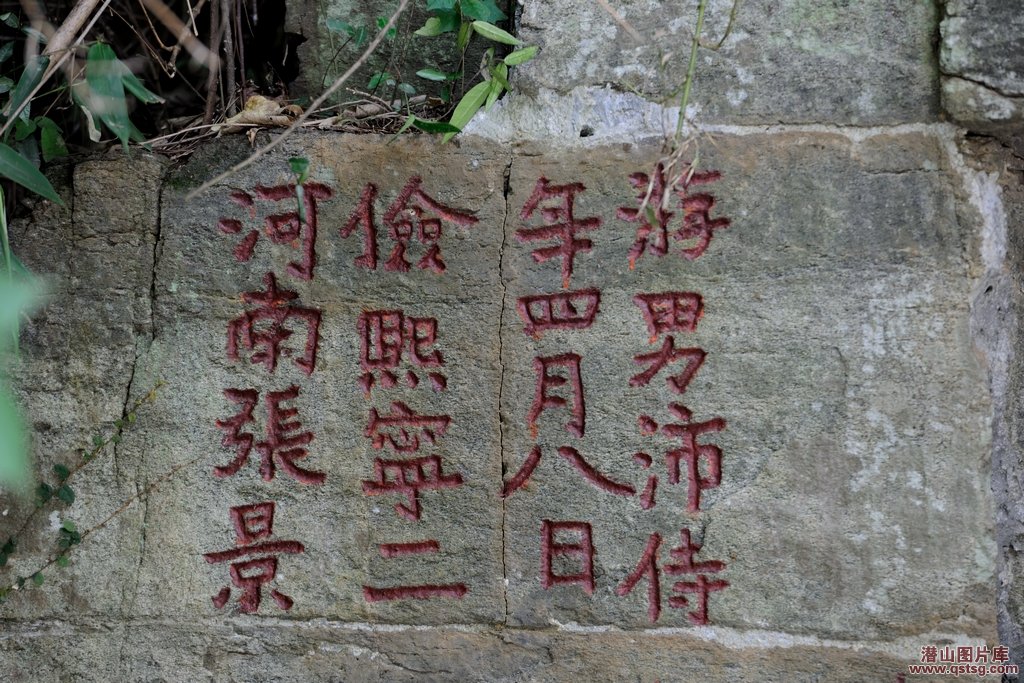 河南張景
儉熙寧二
年四月八日
游男沛侍
潜山图片库
www.qstsg.com